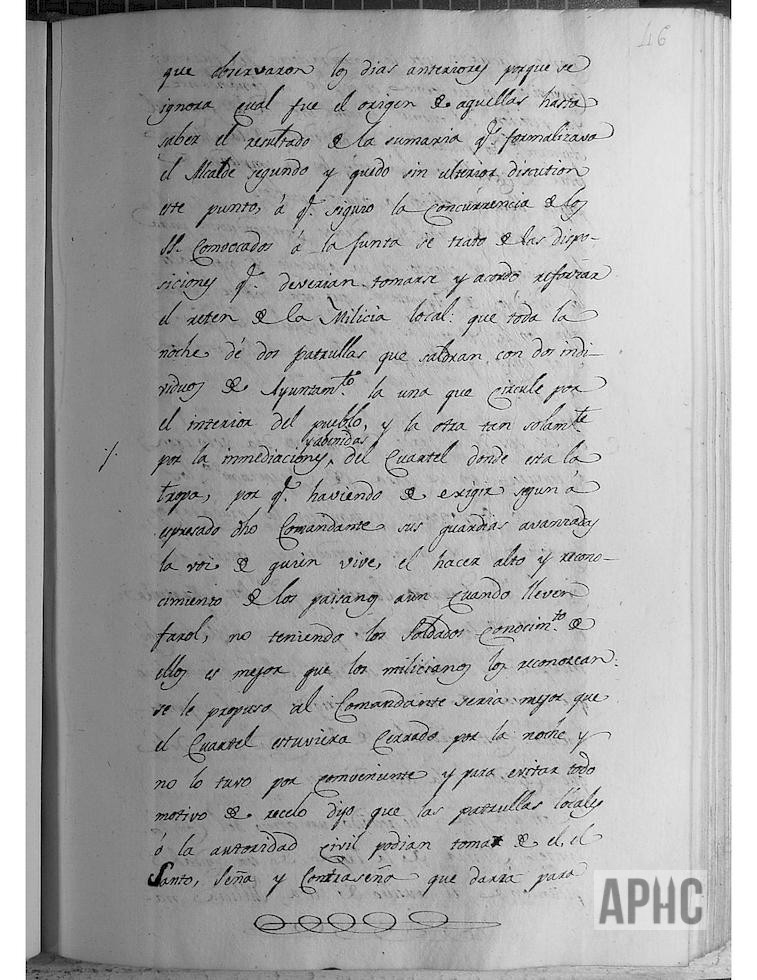 46
que observaron los dias anteriores porque se
ignora cual fue el origen de aquellas hasta
saber el resultado de la sumaria q.e formalizava
el Alcalde segundo y quedo sin ulterior discution
este punto, á q.e siguio la concurrencia de los
SS. Comocados á la Junta se trato de las dispo-
siciones q.e deverian tomarse y acordó reforzar
el reten de la Milicia local: que toda la
noche dé dos patrullas que saldran con dos indi-
viduos de Ayuntam.to la una que circule por
el interior del pueblo, y la otra tan solam.te
yabinidas
./. por la inmediaciones, del Cuartel donde esta la
tropa, por q.e haviendo de exigir segun á
espresado dho Comandante sus guardias avanzadas
la voz de quien vive, el hacer alto y recono-
cimiento de los paisanos aun cuando lleven
farol, no teniendo los Soldados conocim.to de
ellos es mejor que los milicianos los reconozcan:
se le propuso al Comandante seria mejor que
el Cuartel estuviera cerrado por la noche y
no lo tuvo por conveniente y para evitar todo
motivo de recelo dijo que las patrullas locales
ó la autoridad civil podian tomar de el, el
Santo, Seña y Contraseña que dará para
APHC